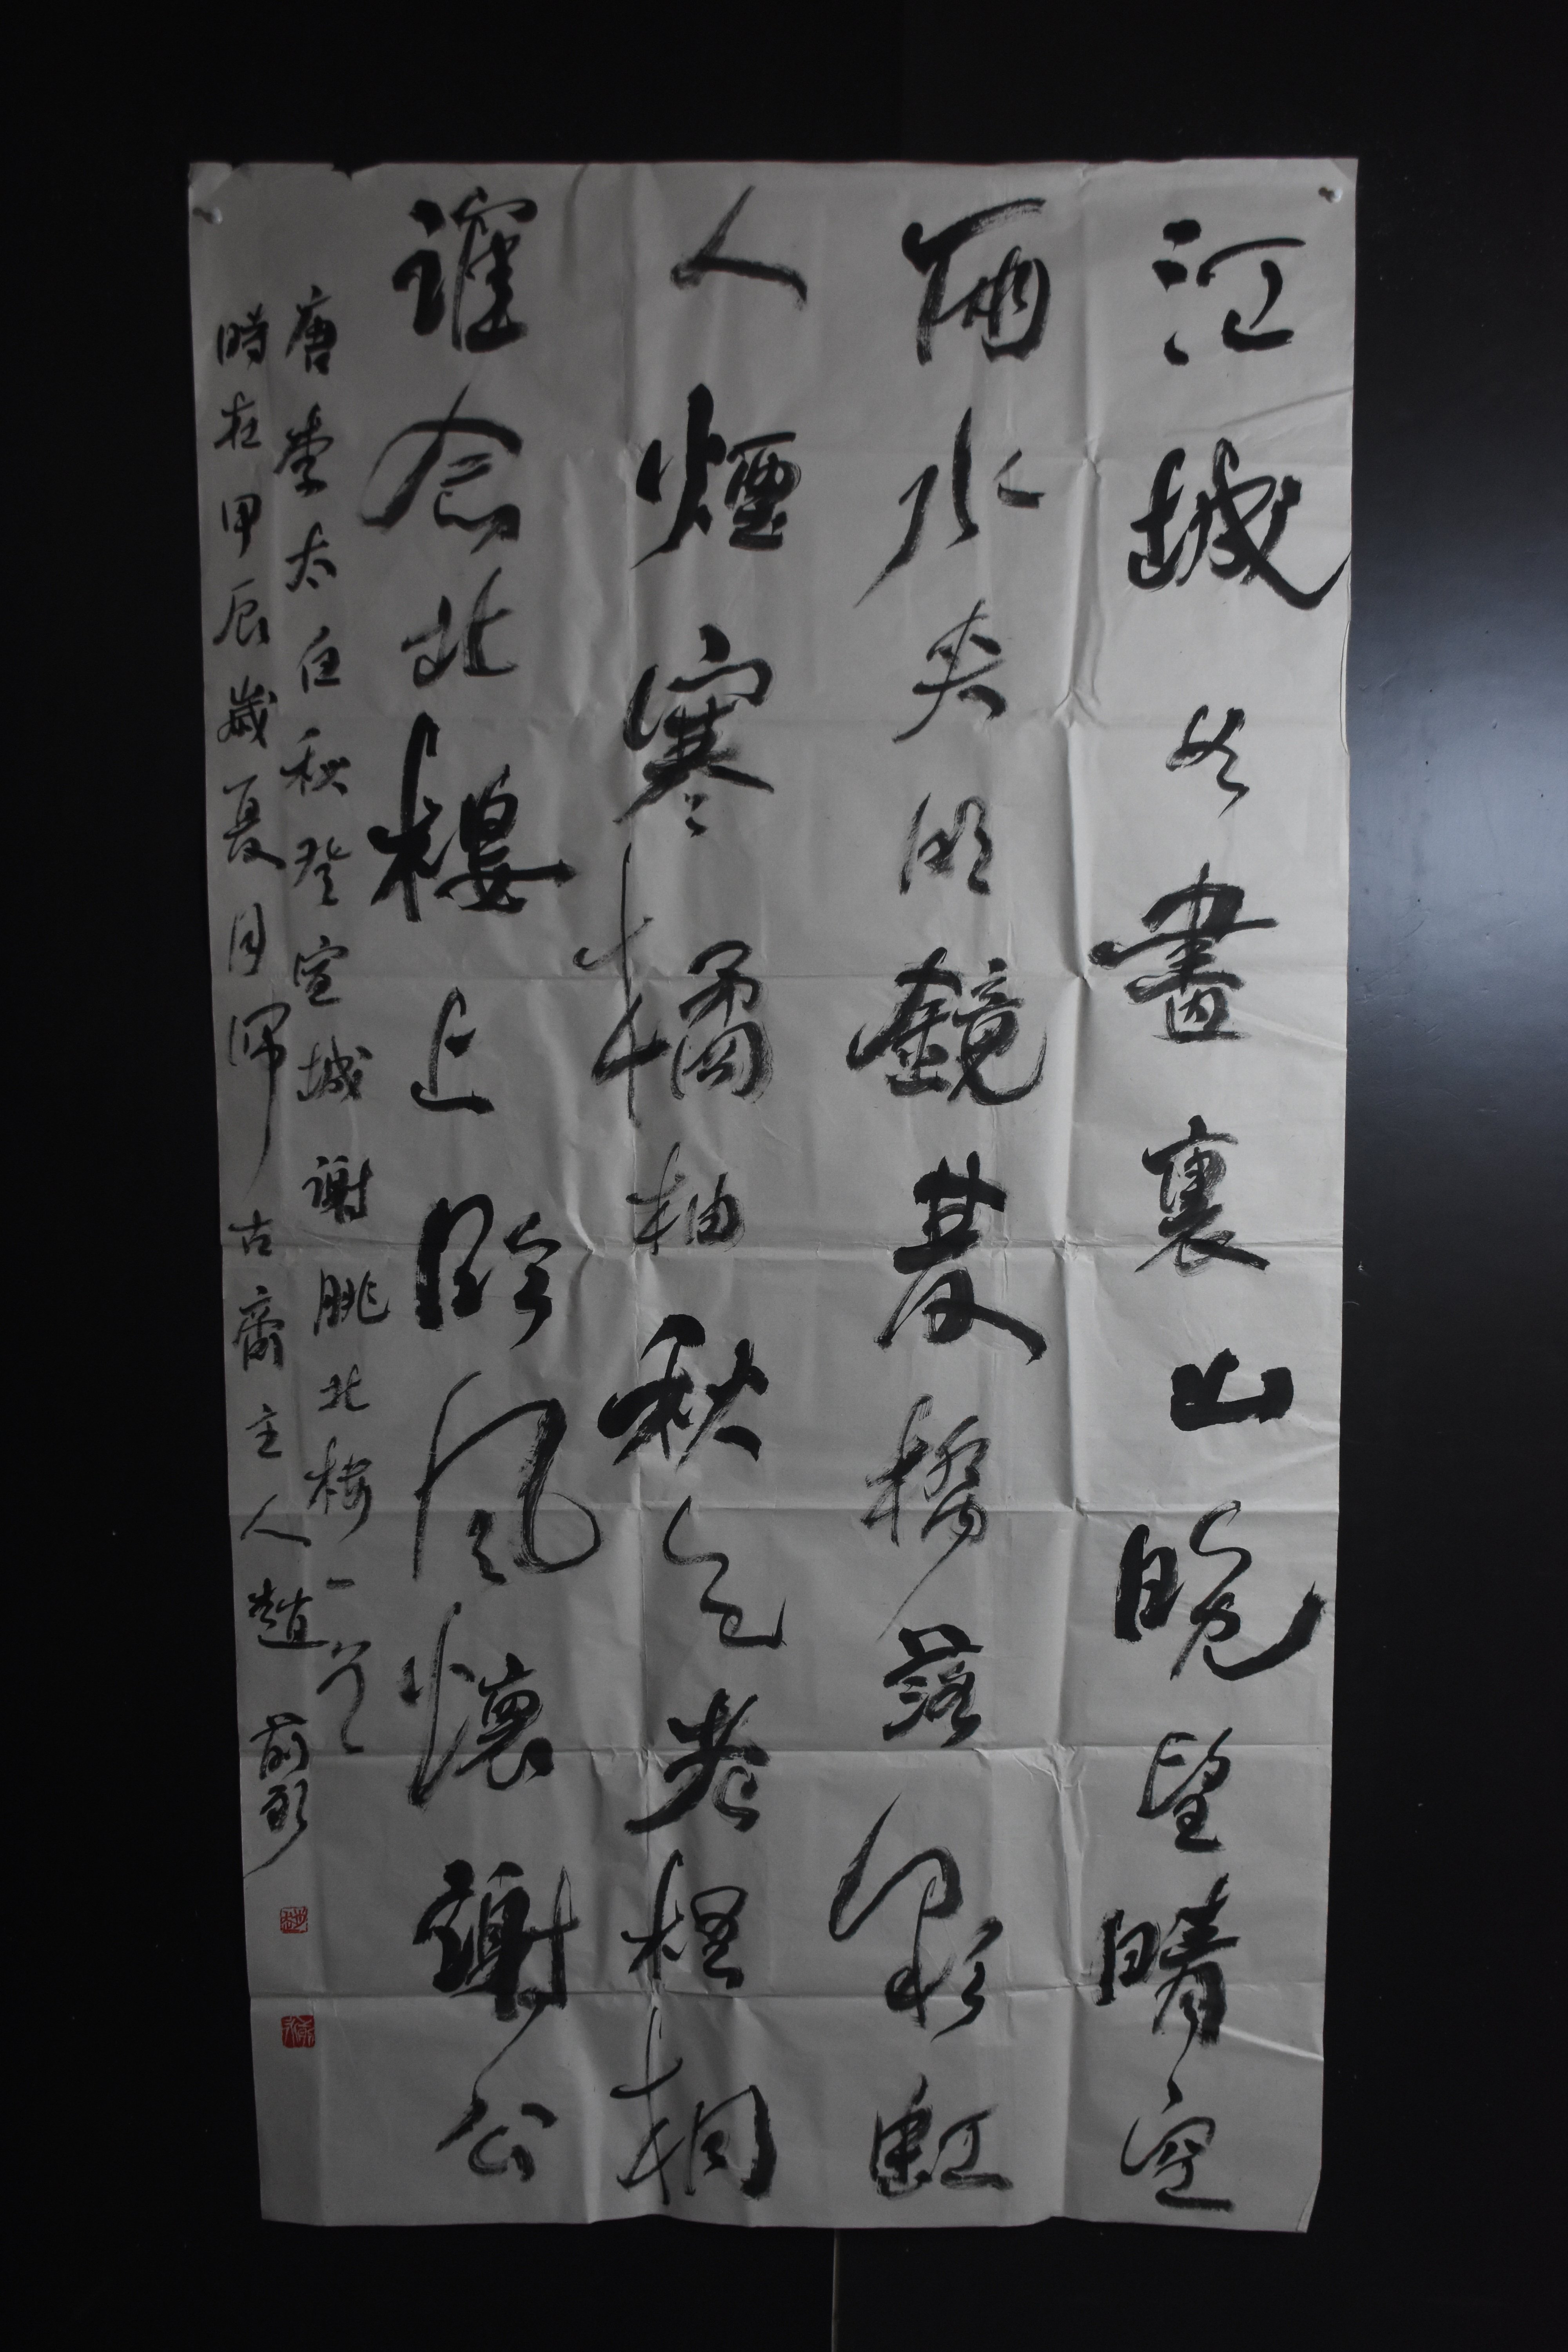 江城如畫裏山晚望晴空
兩水夾明鏡雙橋落彩虹
人煙寒橘柚秋氣老梧桐
誰念北樓上臨風懷謝公
唐李太白秋登宣城謝朓北樓一首
時在甲辰歲夏月 古齋主人趙